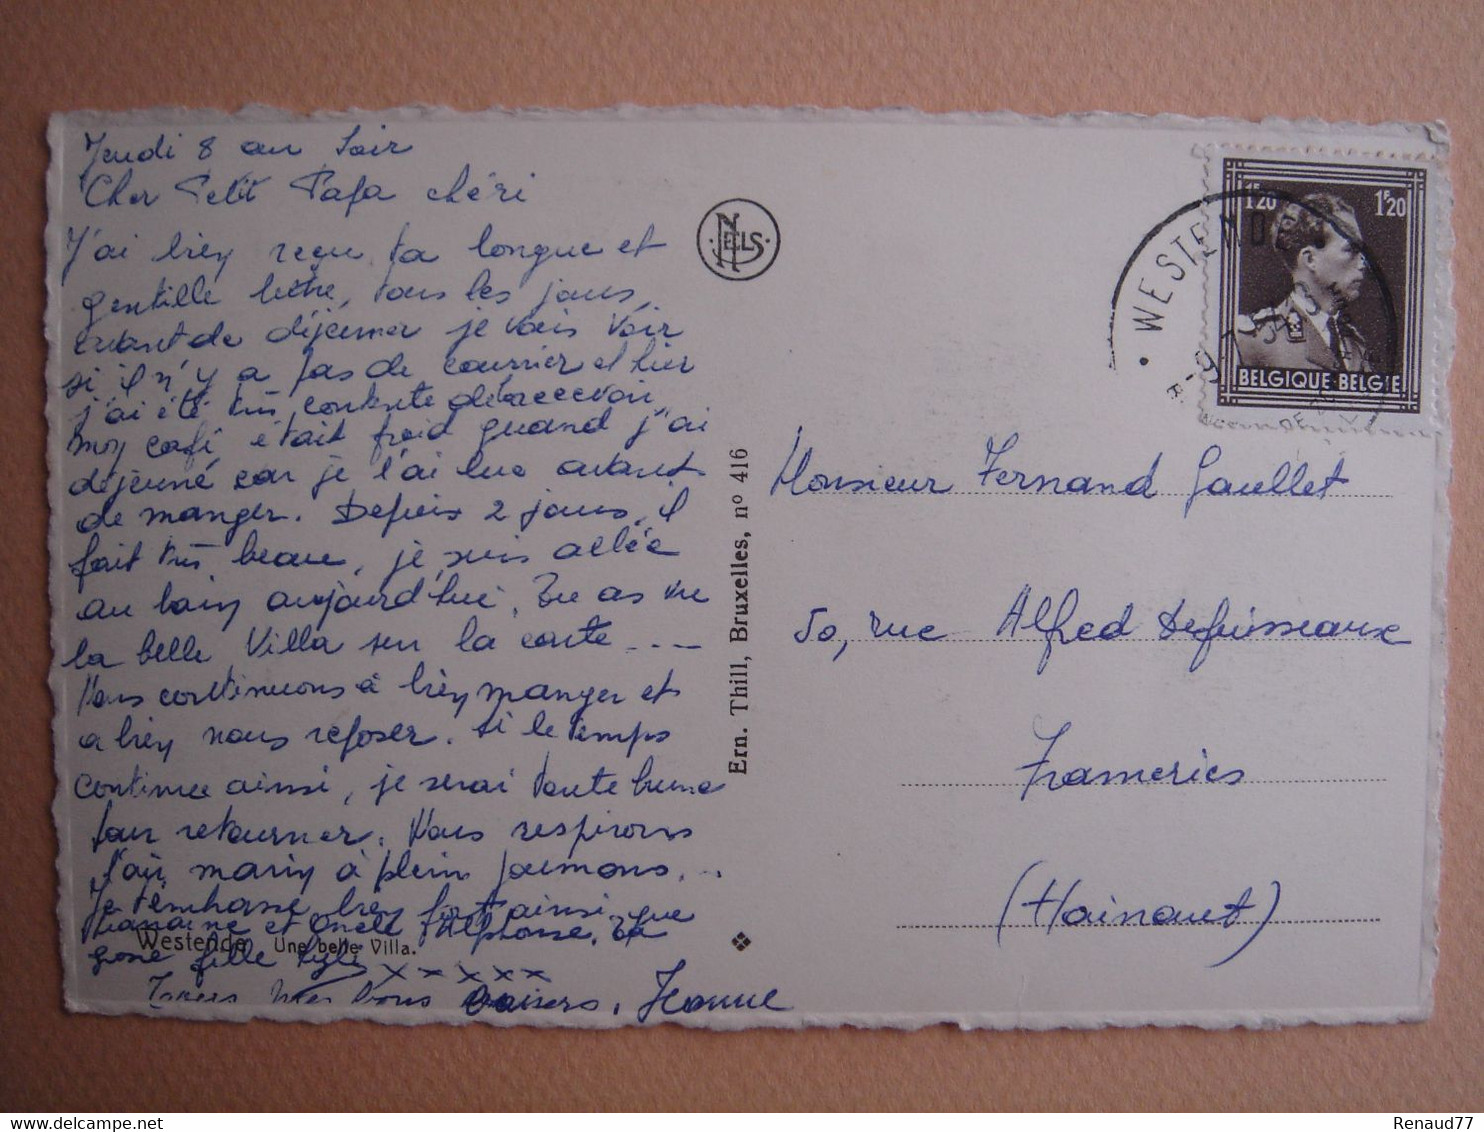 Jeudi 8 au soir
Cher Petit Papa chéri
J'ai bien reçu ta longue et
gentille lettre, tous les jours,
avant de déjeuner je vais voir
si il n'y a pas de courrier et hier
j'ai été très contente de recevoir,
mon café était froid quand j'ai
déjeuné car je l'ai lue avant
de manger. Depuis 2 jours, il
fait très beau, je suis allée
au bain aujourd'hui. Tu as vu
la belle Villa sur la carte ....
Nous continuons à bien manger et
a bien nous reposer. Si le temps
continue ainsi, je serai toute brune
pour retourner. Nous respirons
l'air marin à plein poumons...
Je t'embrasse bien fort ainsi que
et Oncle Alphonse. Ta
fille x x x x x
bons baisers. Jeanne
Westende Une belle Villa.
NELS
Ern. Thill, Bruxelles, nº 416
WESTENDE
1F20 1F20
BELGIQUE-BELGIE
Monsieur Fernand Gaullet
50, rue Alfred Defuisseaux
Frameries
(Hainaut)
Renaud77